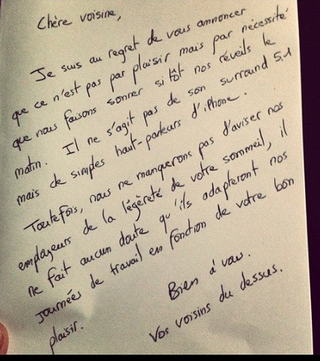 Chère voisine,
Je suis au regret de vous annoncer
que ce n'est pas par plaisir mais par nécessité
que nous faisons sonner si tôt nos réveils le
matin. Il ne s'agit pas de son surround 5.1
mais de simples haut-parleurs d'iPhone.
Toutefois, nous ne manquerons pas d'aviser nos
employeurs de la légèreté de votre sommeil, il
ne fait aucun doute qu'ils adapteront nos
journées de travail en fonction de votre bon
plaisir.
Bien à vous.
Vos voisins du dessus.